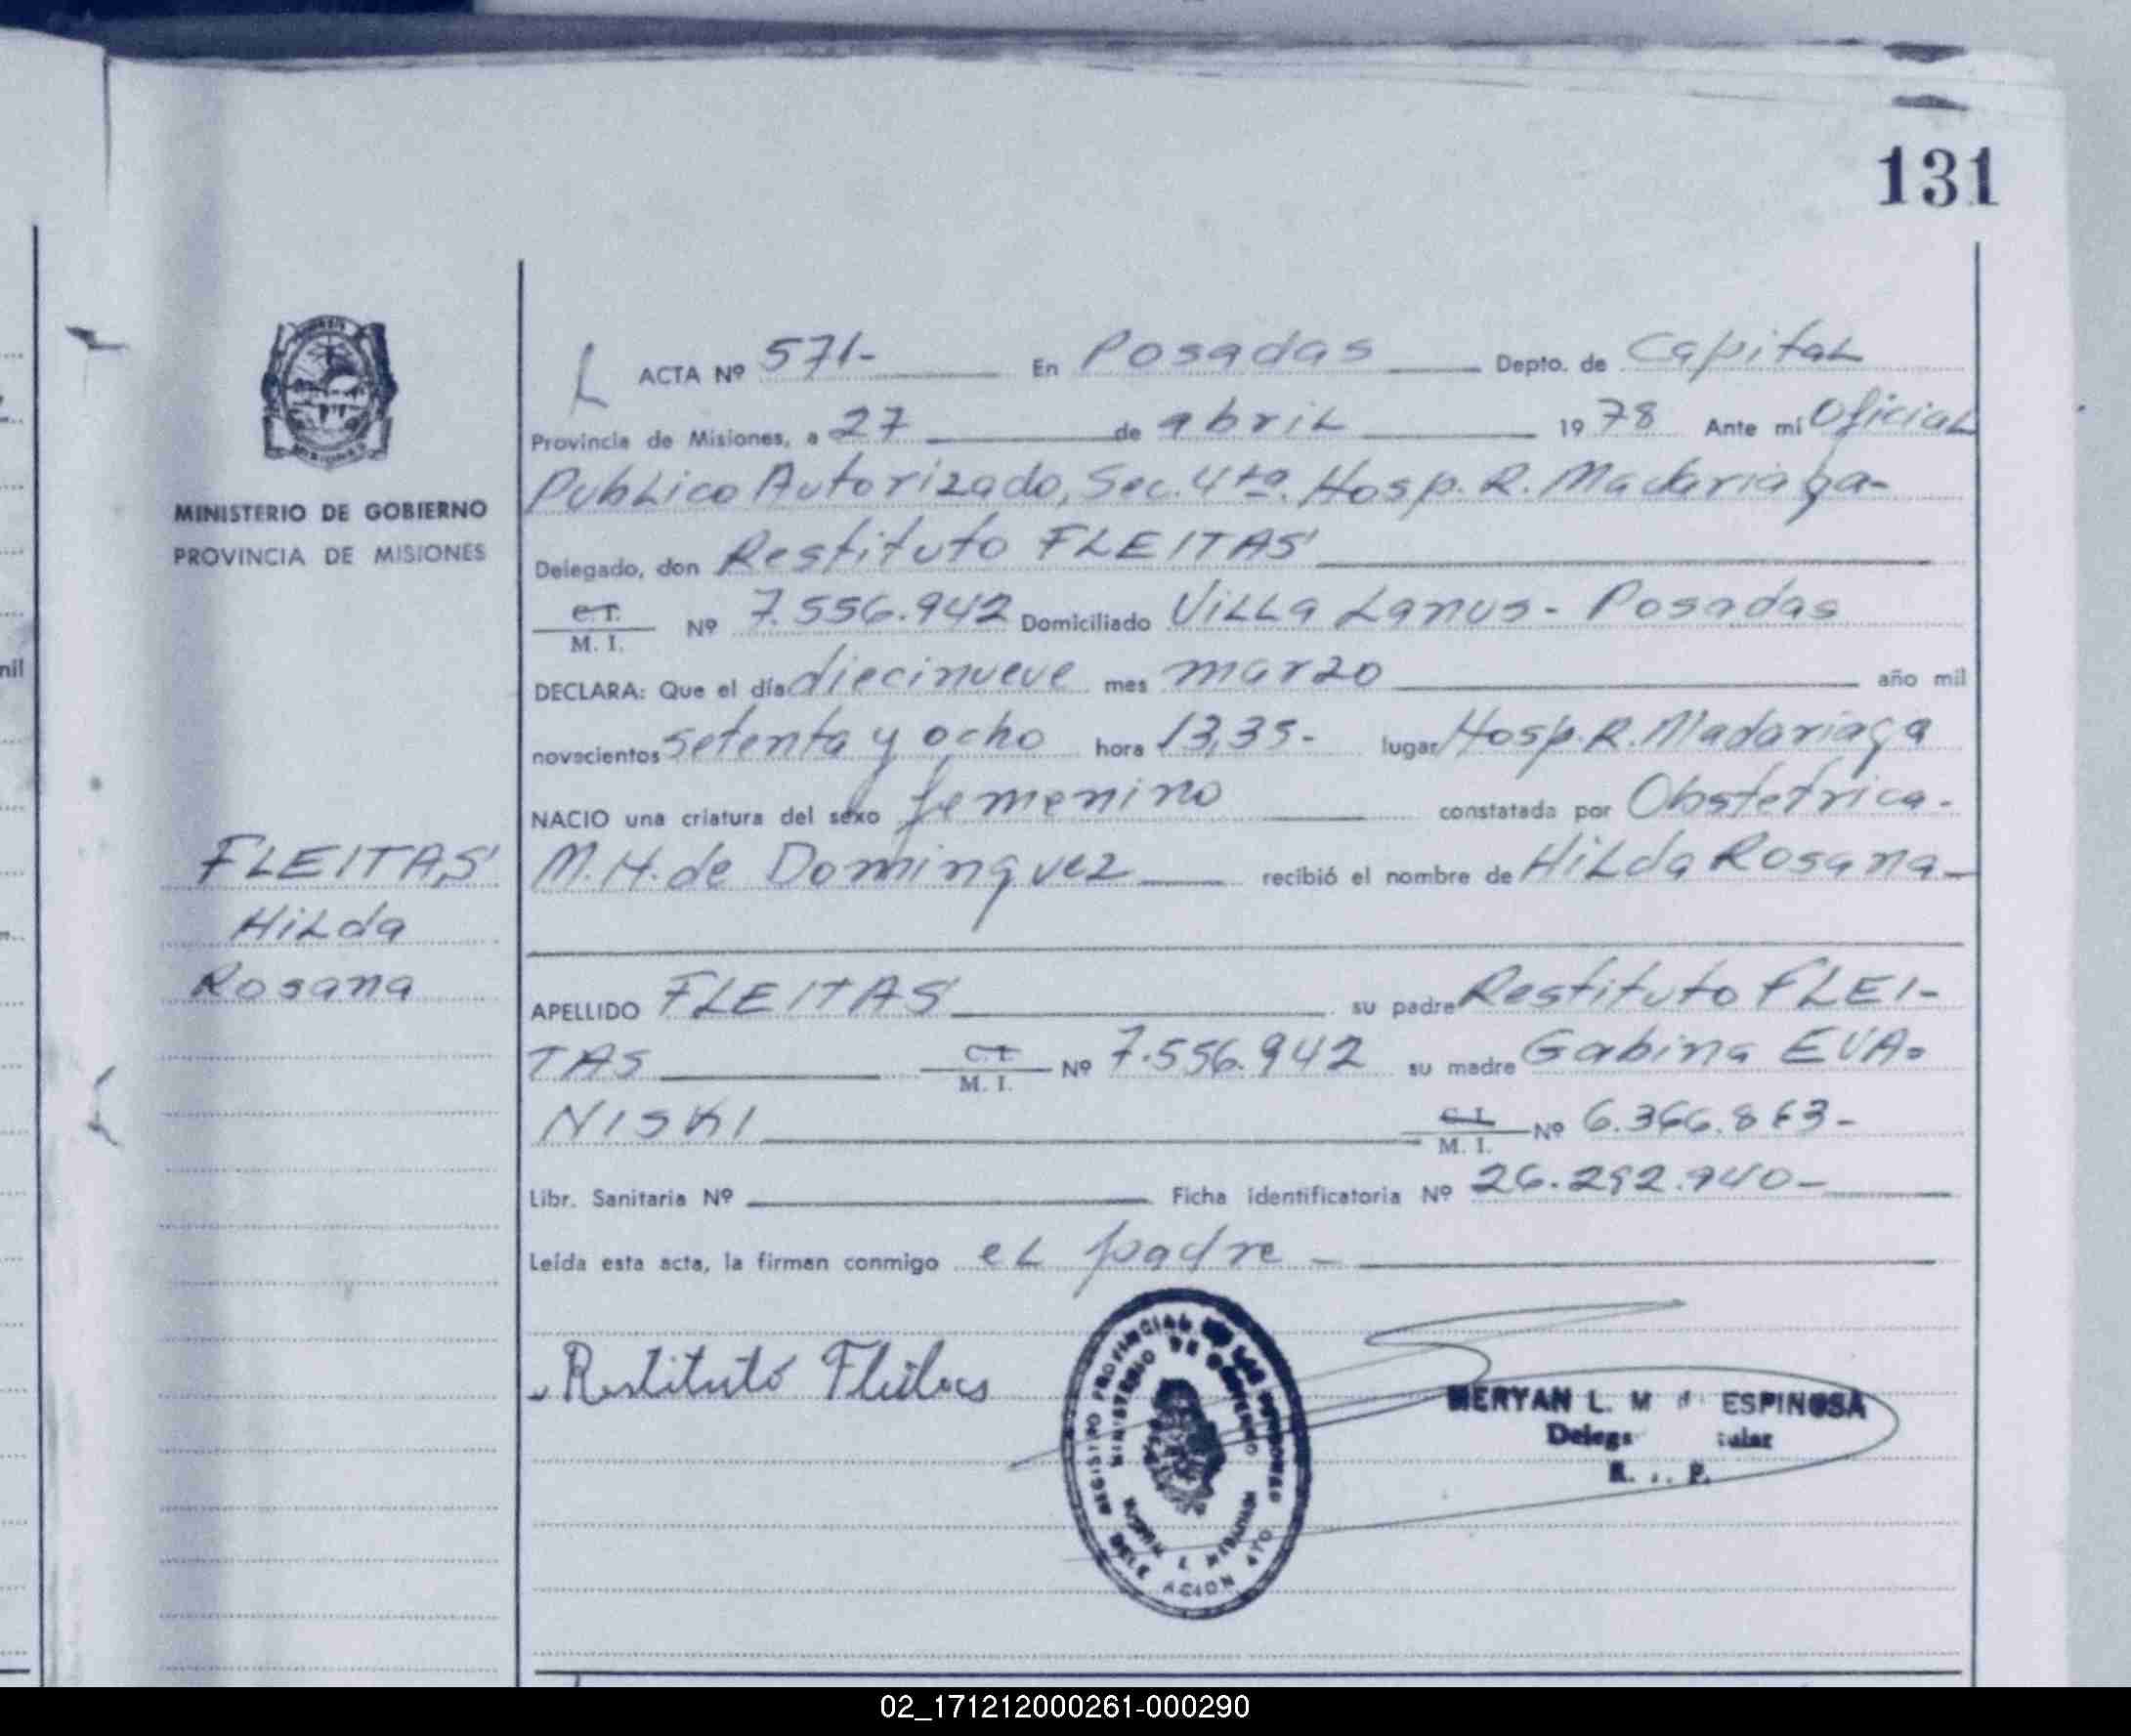 131
L ACTA Nº 571- En Posadas Depto. de Capital
Provincia de Misiones, a 27 de abril 1978 Ante mí Oficial
Publico Autorizado, Sec. 4ta. Hosp. R. Madariaga-
MINISTERIO DE GOBIERNO
PROVINCIA DE MISIONES
Delegado, don Restituto FLEITAS
C.I. M. I. Nº 7.556.942 Domiciliado Villa Lanus - Posadas
DECLARA: Que el día diecinueve mes marzo año mil
novecientos setenta y ocho hora 13,35- lugar Hosp. R. Madariaga
NACIO una criatura del sexo femenino constatada por Obstetrica-
M. H. de Dominguez recibió el nombre de Hilda Rosana-
FLEITAS
Hilda
Rosana
APELLIDO FLEITAS su padre Restituto FLEI-
TAS C.I. M. I. Nº 7.556.942 su madre Gabina EVA-
NISKI C.I. M. I. Nº 6.366.863-
Libr. Sanitaria Nº Ficha identificatoria Nº 26.292.940-
Leída esta acta, la firman conmigo el padre -
Restituto Fleitas
REGISTRO PROVINCIAL DE LAS PERSONAS
MINISTERIO DE GOBIERNO
MERYAN L. M ESPINOSA
mil
02_171212000261-000290